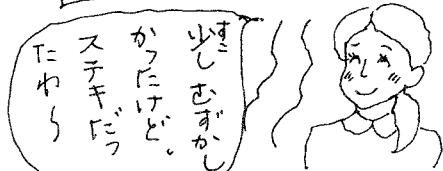 少し むずかし
かったけど、
ステキだっ
たわ〜